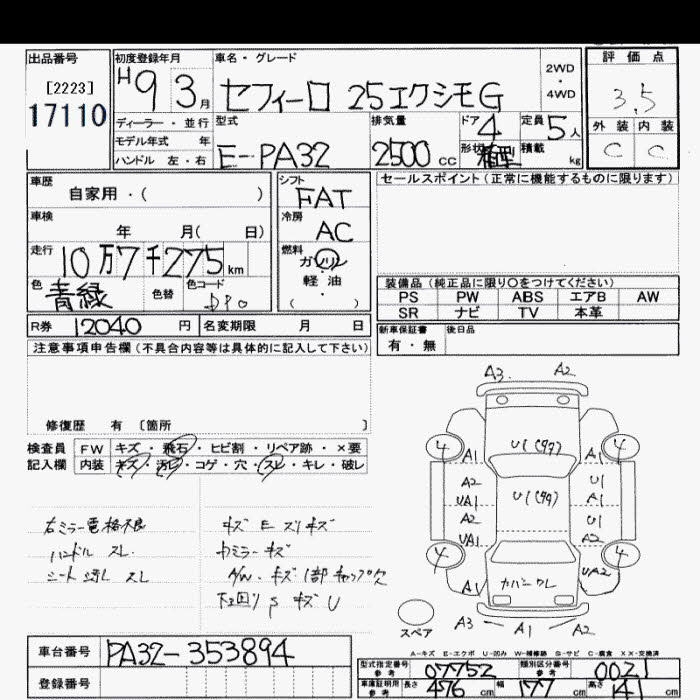 出品番号
[2223]
17110
初度登録年月
H9 3月
車名・グレード
セフィーロ 25エクシモG
2WD
・
4WD
評価点
3.5
外装 内装
C C
ディーラー・並行
モデル年式 年
ハンドル 左・右
型式
E-PA32
排気量
2500 cc
ドア
4
形状
箱型
定員
5人
積載
kg
車歴
自家用・( )
車検
年 月( 日)
走行
10万7千275km
色
青緑
色替
色コード
DP0
シフト
FAT
冷房
AC
燃料
ガソリン
軽油
( ・ )
セールスポイント(正常に機能するものに限ります)
装備品(純正品に限り○をつけてください)
PS PW ABS エアB AW
SR ナビ TV 本革
R券 12040 円
名変期限 月 日
新車保証書
有・無
後日品
注意事項申告欄(不具合内容等は具体的に記入して下さい)
修復歴 有 [箇所 ]
検査員
記入欄
FW キズ・飛石・ヒビ割・リペア跡・×要
内装 キズ・汚レ・コゲ・穴・スレ・キレ・破レ
右ミラー電格不良
ハンドル スレ
シート 汚レ スレ
キズ E スリキズ
カミラー キズ
A/W キズ 1部キャップ欠
下廻り S キズ U
A3 A2
4 A1 U1(99) A1 4
A2 U1
UA1 U1(99) A1
A2 U1
UA1 A2
4 4
A1 カバンワレ UA2
A3 A1 A2
スペア
A-キズ E-エクボ U-凹み W-補修跡 S-サビ C-腐食 XX-交換済
車台番号 PA32-353894
登録番号
型式指定番号
参考
07752
類別区分番号
参考
0021
車庫証明用
参考
長さ 476 cm 幅 177 cm 高さ 141 cm